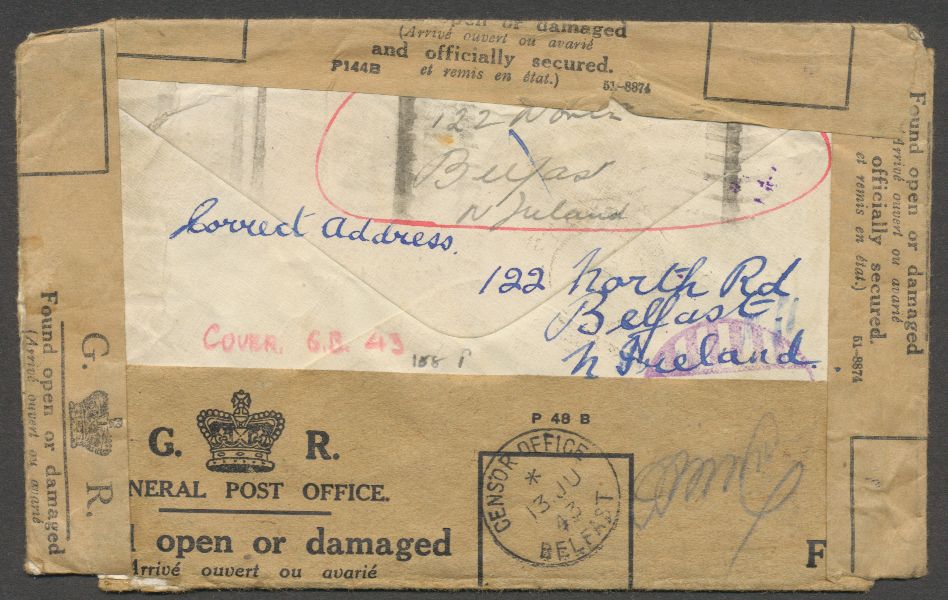 open or damaged
(Arrivé ouvert ou avarié
and officially secured.
P144B et remis en état.) 51-8874
122 North
Belfast
N Ireland
Correct Address.
122 North Rd
Belfast
N Ireland.
COVER. G.B. 43
188 P
Found open or damaged
(Arrivé ouvert ou avarié
officially secured.
et remis en état.)
51-8874
G. R.
Found open or damaged
(Arrivé ouvert ou avarié
P 48 B
G. R.
NERAL POST OFFICE.
open or damaged
Arrivé ouvert ou avarié
CENSOR OFFICE
13 JU
43
BELFAST.
F